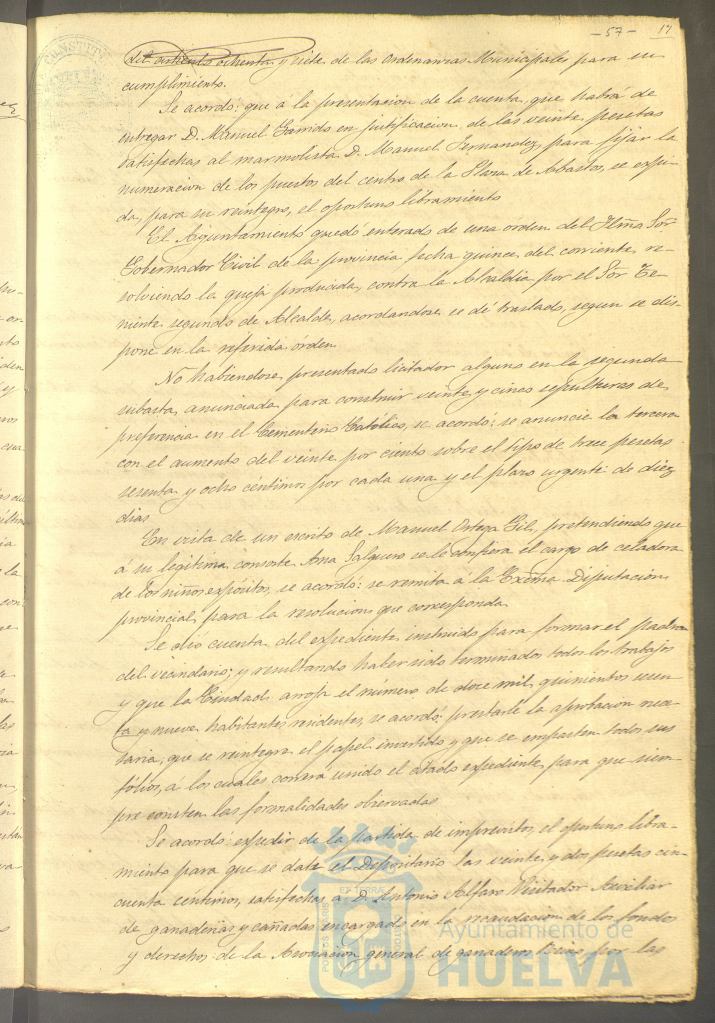 - 57 - 17
del articulo ochenta y siete de las Ordenanzas Municipales para su
cumplimiento.
Se acordó: que a la presentacion de la cuenta, que habrá de
entregar D. Manuel Garrido en justificacion de las veinte pesetas
satisfechas al marmolista D. Manuel Fernandez, para fijar la
numeracion de los puestos del centro de la Plaza de Abastos, se expi-
da, para su reintegro, el oportuno libramiento
El Ayuntamiento quedó enterado de una orden del Ilmo Sor
Gobernador Civil de la provincia fecha quince del corriente, re-
solviendo la queja producida, contra la Alcaldia por el Sor Te-
niente segundo de Alcalde, acordandose, se dé traslado, segun se dis-
pone en la referida orden.
No habiendose presentado licitador alguno en la segunda
subasta, anunciada para construir veinte y cinco sepulturas de
preferencia en el Cementerio Católico, se acordó: se anuncie la tercera
con el aumento del veinte por ciento sobre el tipo de trece pesetas
sesenta y ocho céntimos por cada una y el plazo urgente de diez
dias
En vista de un escrito de Manuel Ortega Gil, pretendiendo que
á su legitima consorte Ana Salguero se le confiera el cargo de celadora
de los niños expósitos, se acordó: se remita a la Exema Diputacion
provincial, para la resolucion que corresponda.
Se dió cuenta del expediente instruido para formar el padron
del vecindario; y resultando haber sido terminados todos los trabajos
y que la Ciudad arroja el número de doce mil quinientos ucuen
ta y nueve habitantes residentes, se acordó: prestarle la aprobacion nece-
saria; que se reintegre el papel invertido y que se empasten todos sus
fólios, a los cuales correrá unido el citado expediente, para que siem
pre consten las formalidades observadas
Se acordó: expedir de la partida de imprevistos el oportuno libra-
miento para que se date el Depositario las veinte y dos pesetas cin-
cuenta céntimos, satisfechas a D. Antonio Alfaro Visitador Auxiliar
de ganaderias y cañadas encargado en la recaudacion de los fondos
y derechos de la Asociacion general de ganaderos por las
Ayuntamiento de
HUELVA